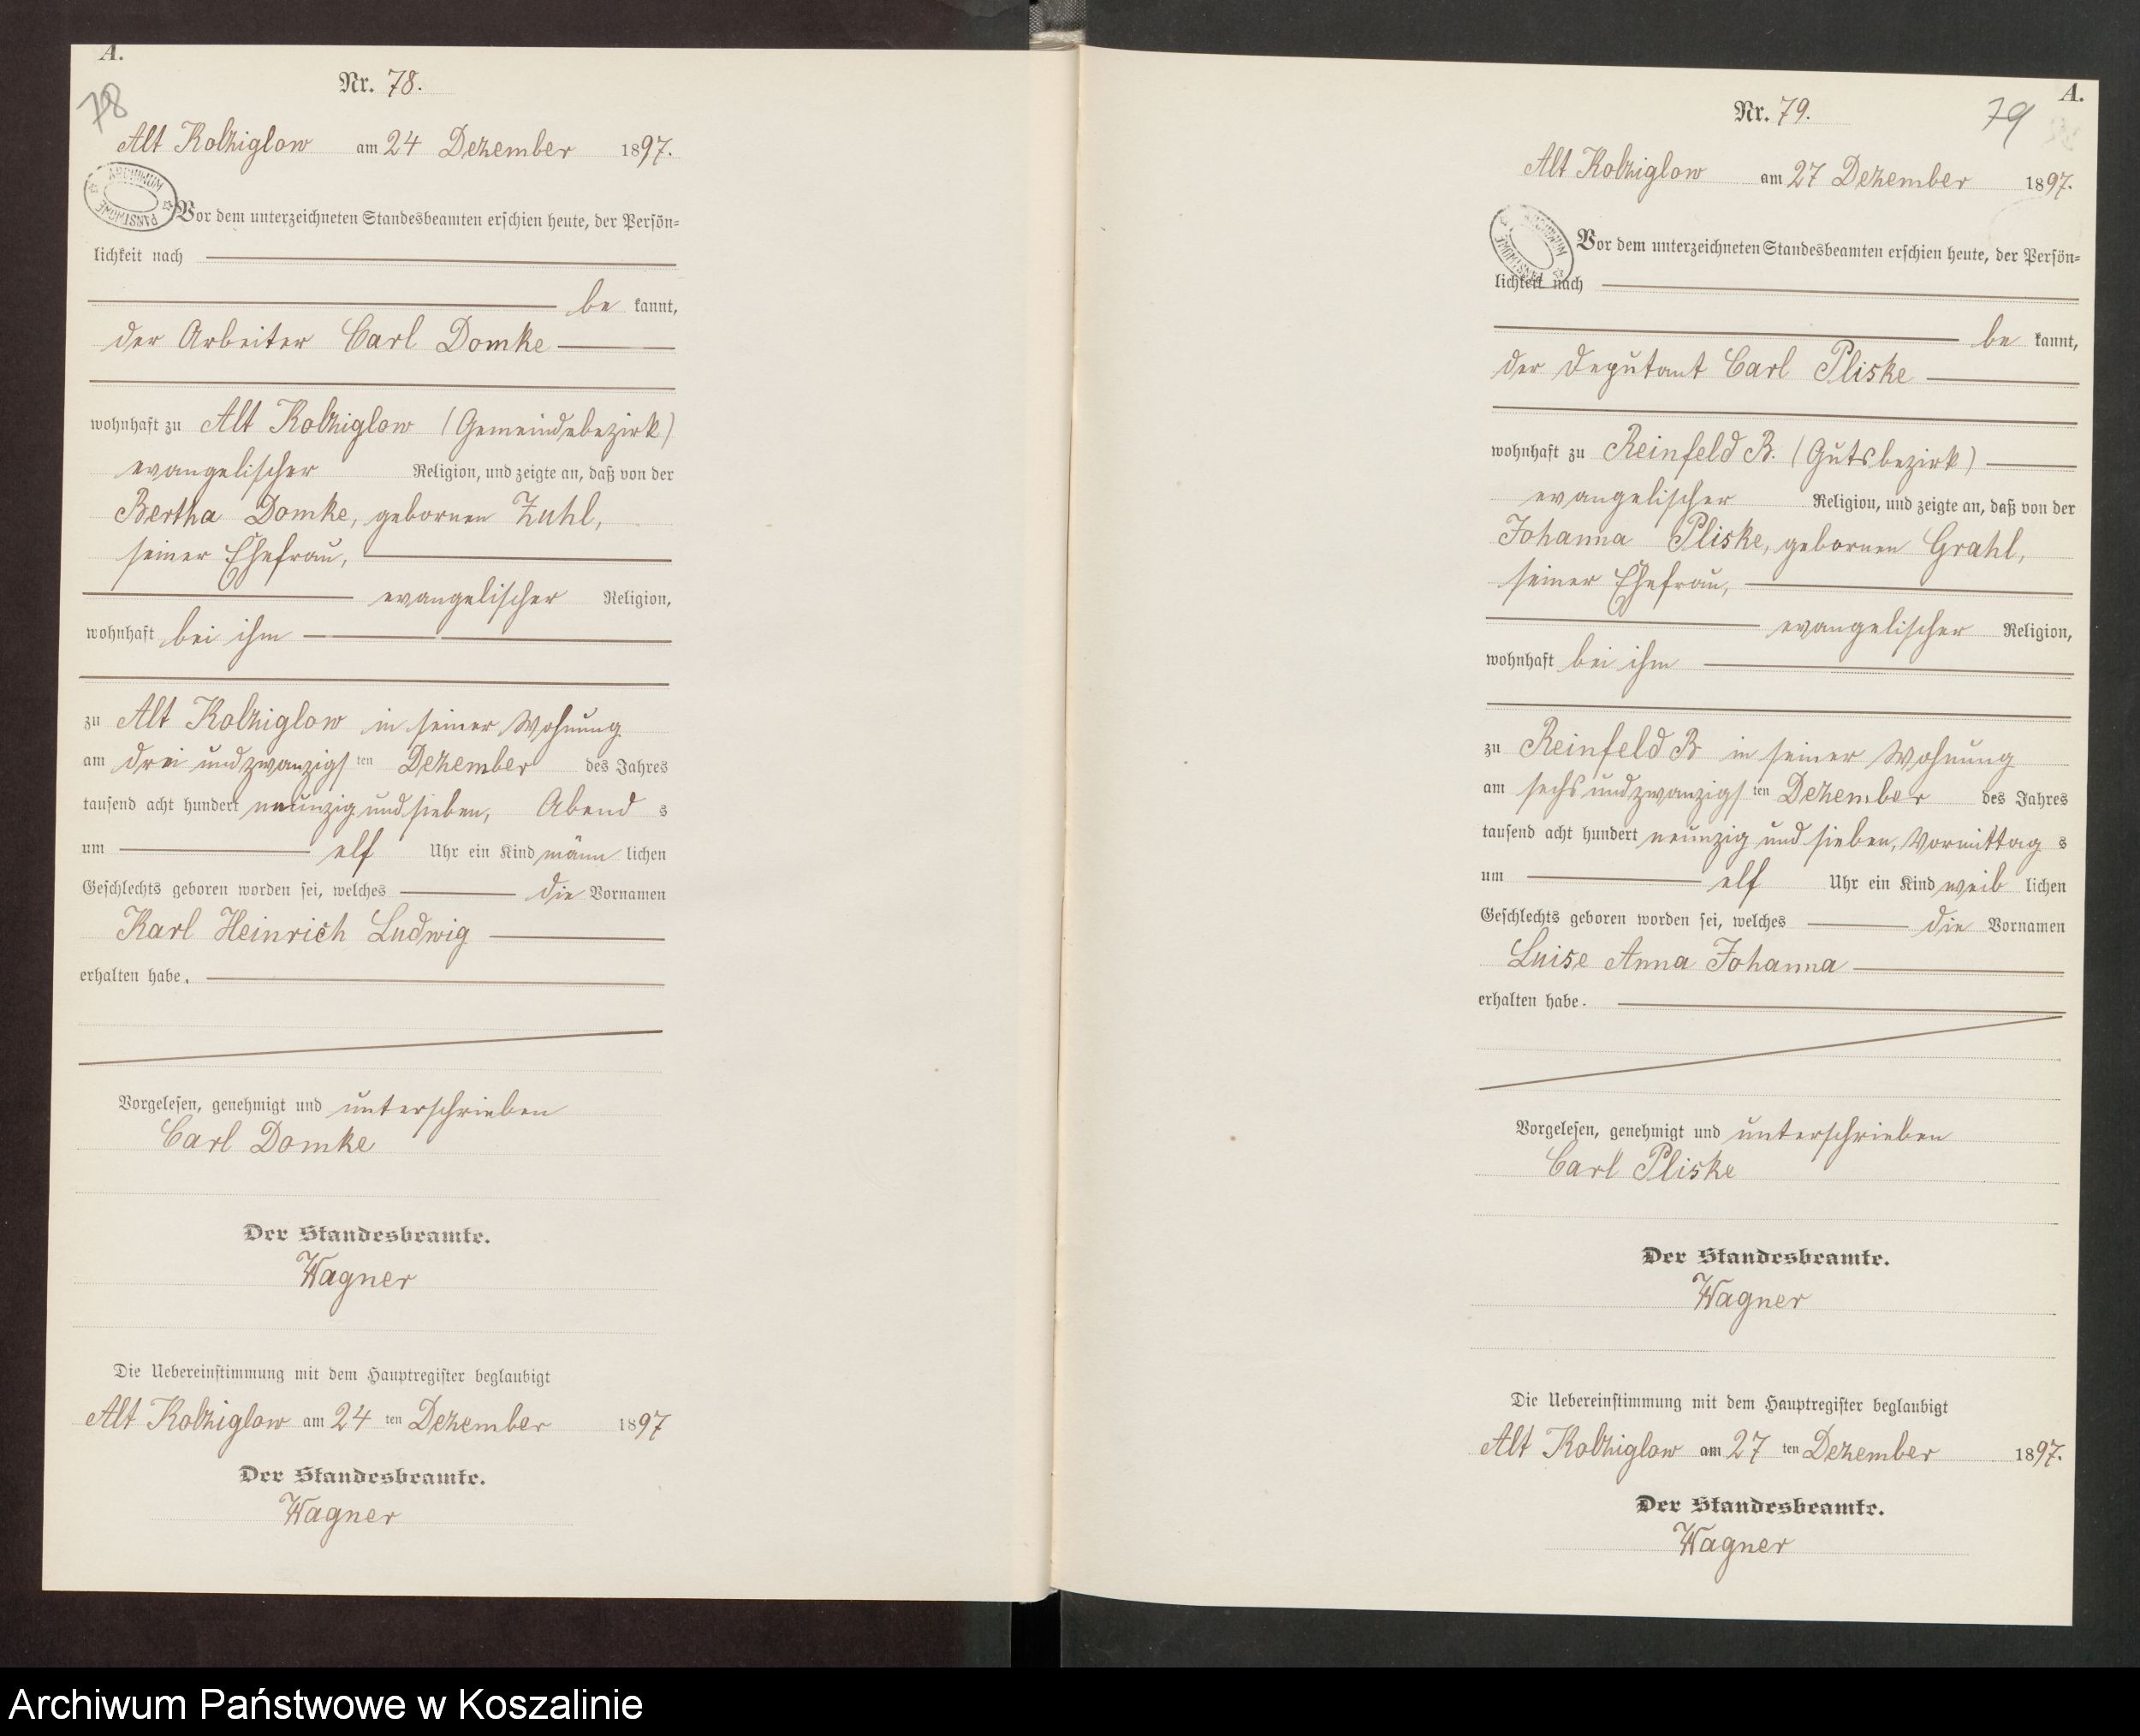 A.
78
Nr. 78.
Alt Kolziglow am 24 Dezember 1897.
ARCHIWUM PAŃSTWOWE
Vor dem unterzeichneten Standesbeamten erschien heute, der Persön=
lichkeit nach
be kannt,
der Arbeiter Carl Domke
wohnhaft zu Alt Kolziglow (Gemeindebezirk)
evangelischer Religion, und zeigte an, daß von der
Bertha Domke, gebornen Zuhl,
seiner Ehefrau,
evangelischer Religion,
wohnhaft bei ihm
zu Alt Kolziglow in seiner Wohnung
am drei und zwanzigs ten Dezember des Jahres
tausend acht hundert neunzig und sieben, Abend s
um elf Uhr ein Kind männ lichen
Geschlechts geboren worden sei, welches die Vornamen
Karl Heinrich Ludwig
erhalten habe.
Vorgelesen, genehmigt und unterschrieben
Carl Domke
Der Standesbeamte.
Wagner
Die Uebereinstimmung mit dem Hauptregister beglaubigt
Alt Kolziglow am 24 ten Dezember 1897
Der Standesbeamte.
Wagner
A.
79
Nr. 79.
Alt Kolziglow am 27 Dezember 1897.
ARCHIWUM PAŃSTWOWE
Vor dem unterzeichneten Standesbeamten erschien heute, der Persön=
lichkeit nach
be kannt,
der Deputant Carl Pliske
wohnhaft zu Reinfeld B. (Gutsbezirk)
evangelischer Religion, und zeigte an, daß von der
Johanna Pliske, gebornen Grahl,
seiner Ehefrau,
evangelischer Religion,
wohnhaft bei ihm
zu Reinfeld B in seiner Wohnung
am sechs und zwanzigs ten Dezember des Jahres
tausend acht hundert neunzig und sieben, Vormittag s
um elf Uhr ein Kind weib lichen
Geschlechts geboren worden sei, welches die Vornamen
Luise Anna Johanna
erhalten habe.
Vorgelesen, genehmigt und unterschrieben
Carl Pliske
Der Standesbeamte.
Wagner
Die Uebereinstimmung mit dem Hauptregister beglaubigt
Alt Kolziglow am 27 ten Dezember 1897.
Der Standesbeamte.
Wagner
Archiwum Państwowe w Koszalinie